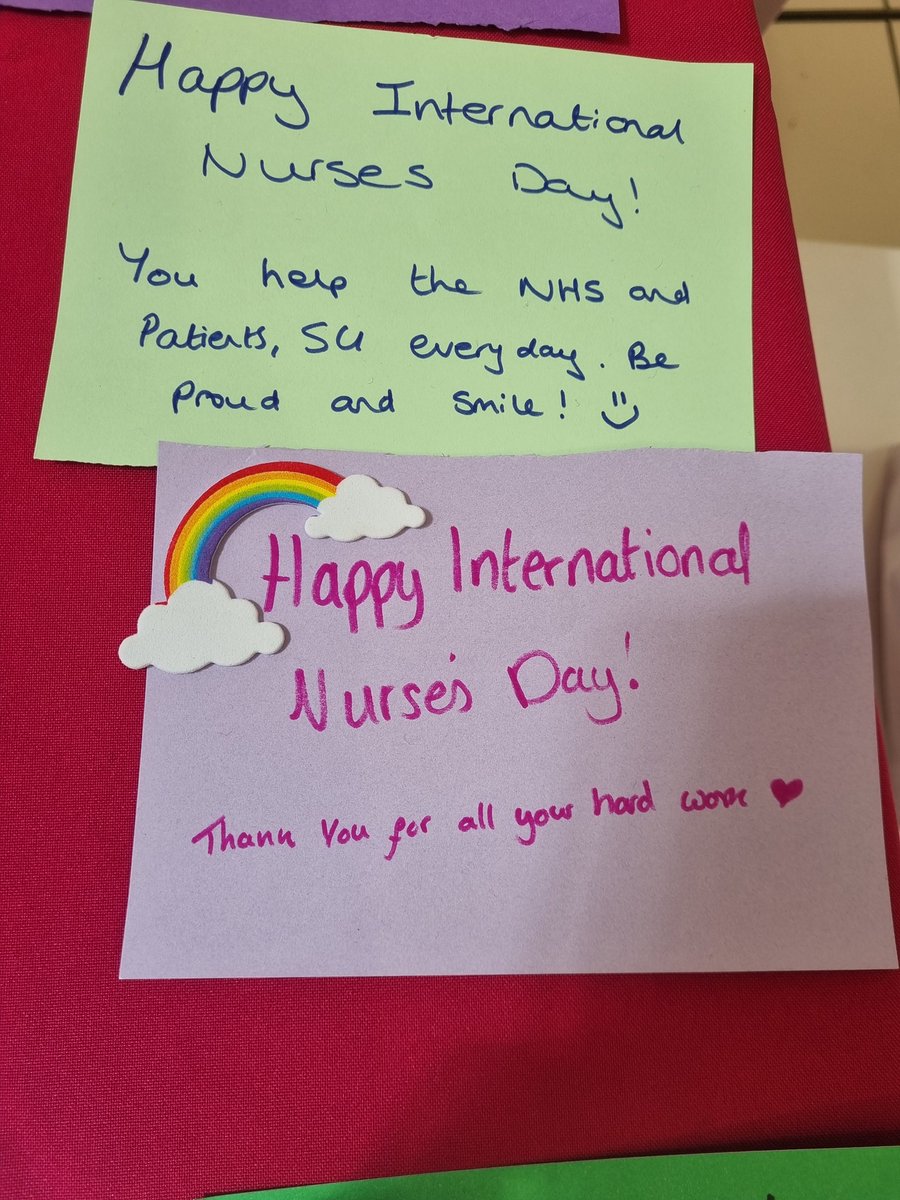 Happy International
Nurses Day!
You help the NHS and
Patients, SU everyday. Be
Proud and smile! :)
Happy International
Nurse's Day!
Thank You for all your hard work ♥